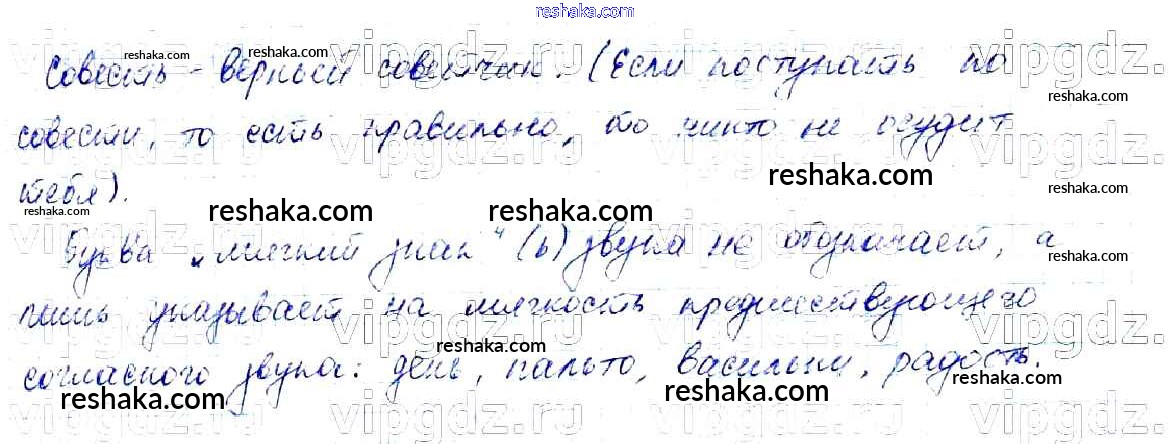 reshaka.com
Совесть - верный советчик. (Если поступать по
совести, то есть правильно, то никто не осудит
тебя).
Буква „мягкий знак“ (ь) звука не обозначает, а
лишь указывает на мягкость предшествующего
согласного звука: день, пальто, васильки, радость.
reshaka.com
reshaka.com
reshaka.com
reshaka.com
reshaka.com
reshaka.com
reshaka.com
reshaka.com
reshaka.com
reshaka.com
reshaka.com
reshaka.com
vipgdz.ru
vipgdz.ru
vipgdz.ru
vipgdz.ru